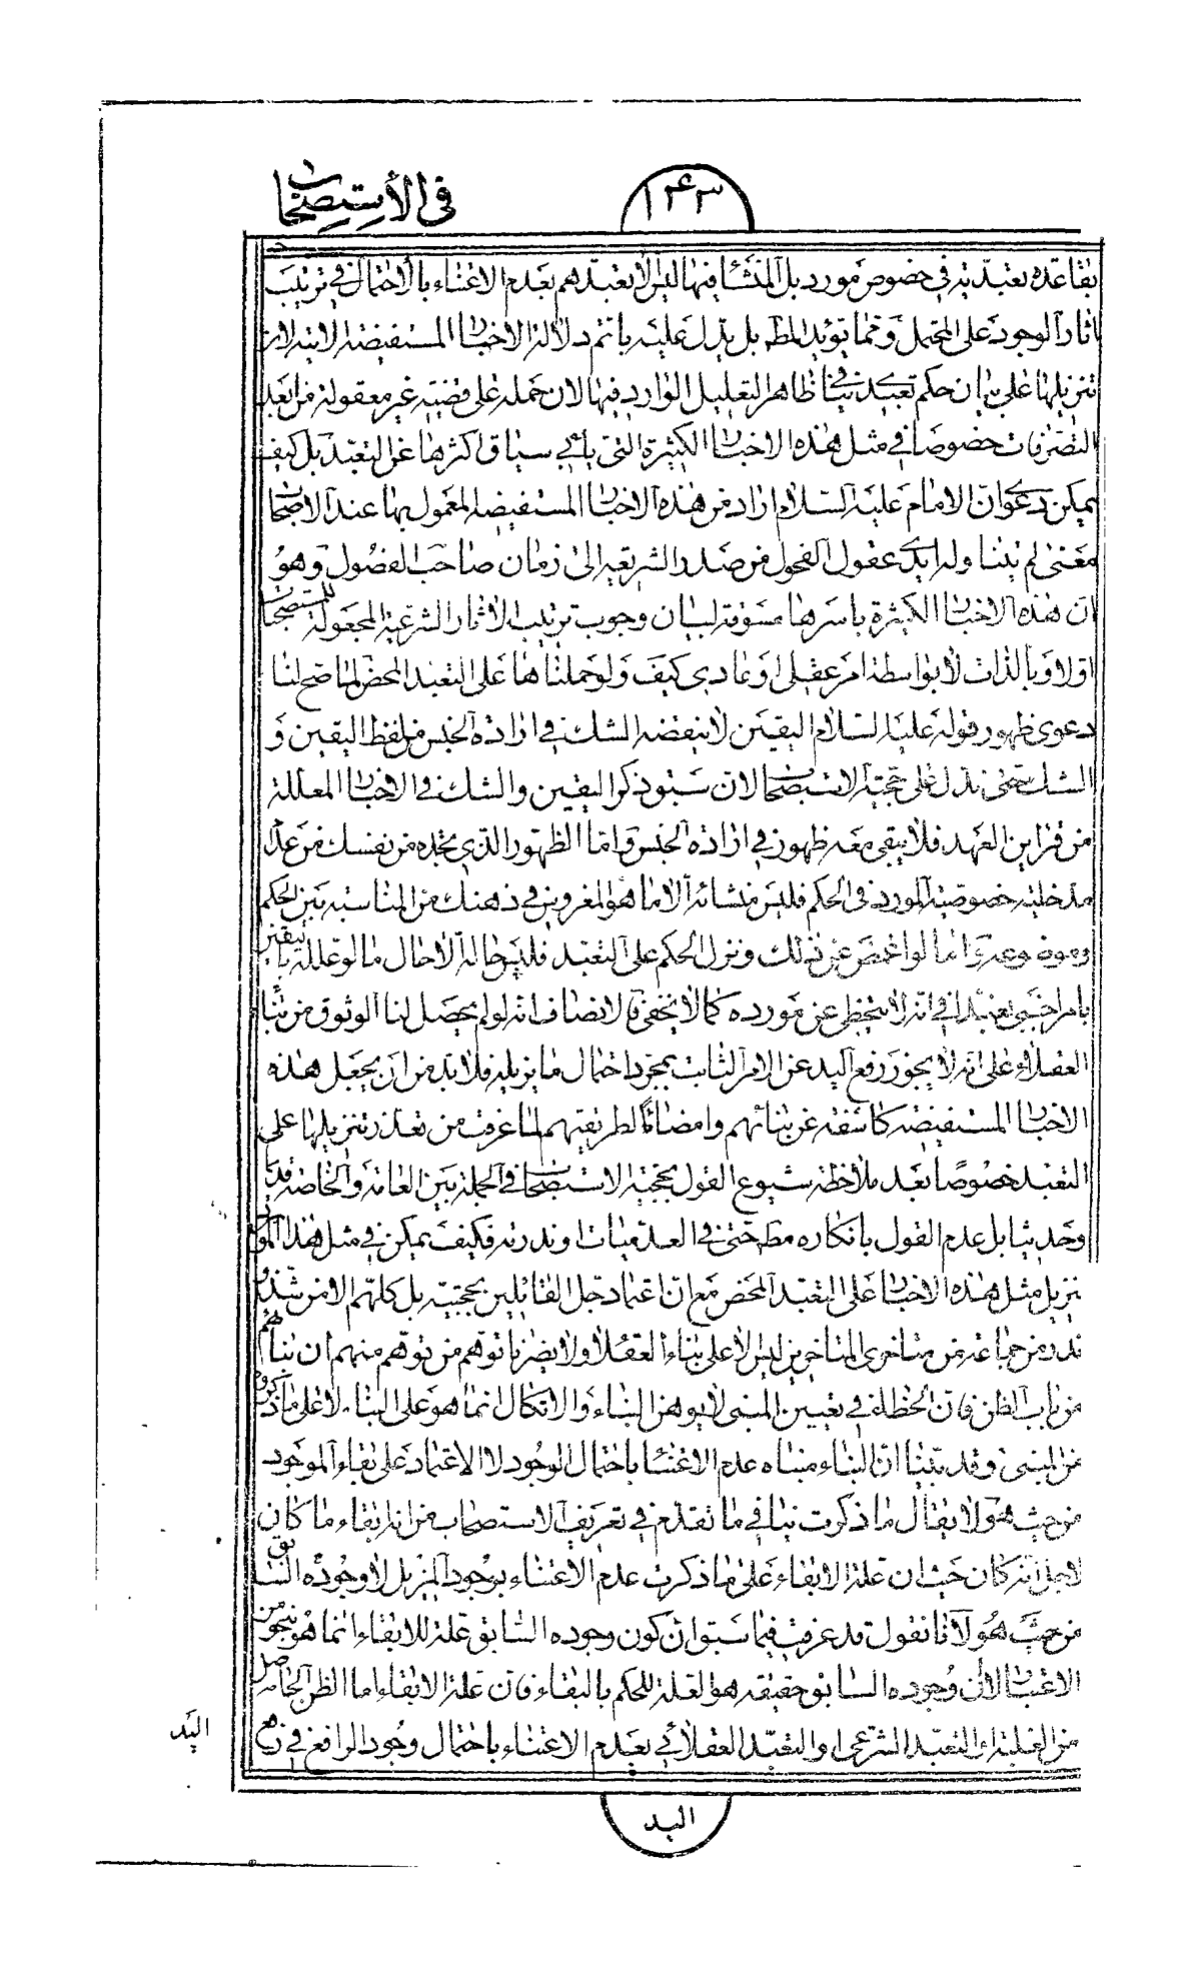 ١٤٣
في الأستصحاب
بقاعدة تعبدية في خصوص مورد بل المنشأ فيها ليس الا تعبدهم بعدم الاعتناء بالاحتمال في ترتيب
اثار الوجود على المحتمل ومما يؤيد المط بل يدل عليه بأتم دلالة الاخبار المستفيضة الاتية لان
تنزيلها على بيان حكم تعبدي ينافي ظاهر التعليل الوارد فيها لان حمله على قضية غير معقولة من ابعد
التصرفات خصوصا في مثل هذه الاخبار الكثيرة التي يأبى سياق اكثرها عن التعبد بل كيف
يمكن دعوى ان الامام عليه السلام اراد من هذه الاخبار المستفيضة المعمول بها عند الاصحاب
معنى لم يتنبا وله ايدي عقول الفحول من صدر الشريعة الى زمان صاحب الفصول وهو
ان هذه الاخبار الكثيرة باسرها مسوقة لبيان وجوب ترتيب الاثار الشرعية المجعولة للمستصحبات
اولا وبالذات لا بواسطة امر عقلي او عادي كيف ولو حملناها على التعبد المحض لما صح لنا
دعوى ظهور قوله عليه السلام اليقين لا ينقضه الشك في ارادة الجنس من لفظ اليقين و
الشك حتى يدل على حجية الاستصحاب لان سبق ذكر اليقين والشك في الاخبار المعللة
من قراين العهد فلا يبقى معه ظهور في ارادة الجنس واما الظهور الذي تجده من نفسك من عدم
مدخلية خصوصية المورد في الحكم فليس منشائه الا ما هو المغروس في ذهنك من المناسبة بين الحكم
وموضوعه واما لو اغمض عن ذلك ونزل الحكم على التعبد فليس حاله الا حال ما لو علله باليقين
بامر اجنبي تعبدا في انه لا يتخطى عن مورده كما لا يخفى فالانصاف انه لو لم يحصل لنا الوثوق من بناء
العقلاء على انه لا يجوز رفع اليد عن الامر الثابت بمجرد احتمال ما يزيله فلا بد من ان يجعل هذه
الاخبار المستفيضة كاشفة عن بنائهم وامضاء لطريقتهم لما عرفت من تعذر تنزيلها على
التعبد خصوصا بعد ملاحظة شيوع القول بحجية الاستصحاب في الجملة بين العامة والخاصة قديما
وحديثا بل عدم القول بانكاره مط حتى في العدميات او ندرته فكيف يمكن في مثل هذا الموارد
تنزيل مثل هذه الاخبار على التعبد المحض مع ان اعتماد جل القائلين بحجيته بل كلهم الا من شذ و
ندر من جماعة من متاخري المتاخرين ليس الا على بناء العقلاء ولا يضر ما توهم من توهم منهم ان بنائهم
من باب الظن فان الخطاء في تعيين المبنى لا يوهن البناء والاتكال انما هو على البناء لا على ما ذكروه
من المبنى وقد بينا ان البناء مبناه عدم الاعتناء باحتمال الوجود لا الاعتماد على بقاء الموجود
من حيث هو لا يقال ما ذكرت ينافي ما تقدم في تعريف الاستصحاب من انه ابقاء ما كان
لاجل انه كان حيث ان علة الابقاء على ما ذكرت عدم الاعتناء بوجود المزيل لا وجوده السابق
من حيث هو لانا نقول قد عرفت فيما سبق ان كون وجوده السابق علة للابقاء انما هو بنحو من
الاعتبار لا ان وجوده السابق حقيقة هو العلة للحكم بالبقاء فان علة الابقاء اما الظن الحاصل
من الغلبة او التعبد الشرعي او التعبد العقلائي بعدم الاعتناء باحتمال وجود الرافع في رفع
اليد
اليد